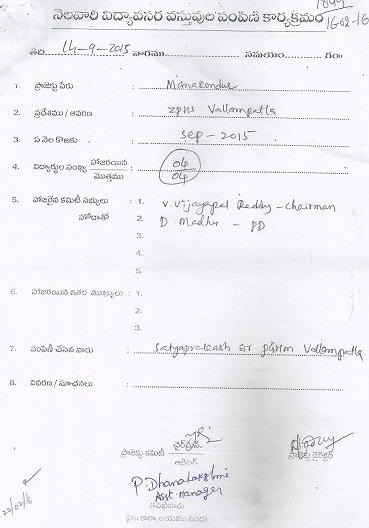 నెలవారి విద్యావసర వస్తువుల పంపిణి కార్యక్రమం
16-02-16
తేది 14-9-2015 వారము సమయం గం॥
1. ప్రాజెక్టు పేరు : Manakondur
2. ప్రదేశము / ఆవరణ : ZPHS Vallampatla
3. ఏ నెల కొఱకు : Sep - 2015
4. విద్యార్థుల సంఖ్య హాజరయిన / మొత్తము : 04 / 04
5. హాజరైన కమిటి సభ్యులు : 1. V. Vijayapal Reddy - Chairman
హోదాతో 2. D. Madhu - PD
3.
4.
5.
6. హాజరయిన ఇతర ముఖ్యులు : 1.
2.
3.
7. పంపిణీ చేసిన వారు : Satyaprakash sir PGHM Vallampatla
8. వివరణ / సూచనలు :
ప్రాజెక్టు కమిటీ ఛైర్మన్ ప్రాజెక్టు డైరెక్టర్
P. Dhanalakshmi
Asst. Manager
22/02/16